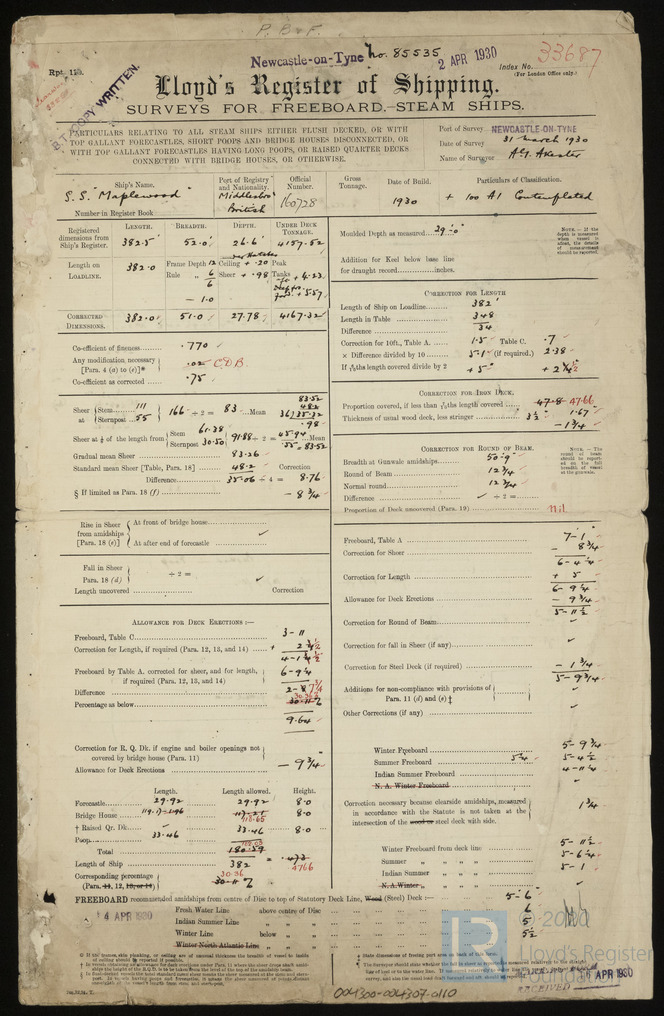 P. B & F.
Newcastle-on-Tyne No. 85535 2 APR 1930 Index No. 33687
(For London Office only.)
Rpt.
B.T. COPY WRITTEN.
Lloyd's Register of Shipping.
SURVEYS FOR FREEBOARD.—STEAM SHIPS.
PARTICULARS RELATING TO ALL STEAM SHIPS EITHER FLUSH DECKED, OR WITH
TOP GALLANT FORECASTLES, SHORT POOPS AND BRIDGE HOUSES DISCONNECTED, OR
WITH TOP GALLANT FORECASTLES HAVING LONG POOPS, OR RAISED QUARTER DECKS
CONNECTED WITH BRIDGE HOUSES, OR OTHERWISE.
Port of Survey NEWCASTLE-ON-TYNE
Date of Survey 31 March 1930
Name of Surveyor
Ship's Name. Port of Registry and Nationality. Official Number. Gross Tonnage. Date of Build. Particulars of Classification.
S.S. "Maplewood" Middlesbro' British 160728 1930 + 100 A1 Contemplated
Number in Register Book
Registered dimensions from Ship's Register. LENGTH. 382.5 BREADTH. 52.0 DEPTH. 26.6 UNDER DECK TONNAGE. 4157.52
Length on LOADLINE. 382.0 Frame Depth 12 Rule „ 6 6 — 1.0 Ceiling + .20 Sheer + .98 Peak Tanks + 4.23 + 5.57
CORRECTED DIMENSIONS. 382.0 51.0 27.78 4167.32
Moulded Depth as measured 29'-0"
NOTE.—If the depth is measured when vessel is afloat, the details of measurement should be reported.
Addition for Keel below base line
for draught record inches.
Co-efficient of fineness .770
Any modification necessary [Para. 4 (a) to (e)]* .02 C.D.B.
Co-efficient as corrected .75
CORRECTION FOR LENGTH
Length of Ship on Loadline 382'
Length in Table 348
Difference 34
Correction for 10ft., Table A. 1.5 Table C. .7
× Difference divided by 10 5.1 (if required.) 2.38
If 6/10ths length covered divide by 2 + 5" + 2 1/2
Sheer at { Stem 111 Sternpost 55 } 166 ÷ 2 = 83 Mean
Sheer at 1/8 of the length from { Stem 61.38 Sternpost 30.50 } 91.88 ÷ 2 = 45.94 Mean
Gradual mean Sheer 83.26
Standard mean Sheer [Table, Para. 18] 48.2 Correction
Difference 35.06 ÷ 4 = 8.76
§ If limited as Para. 18 (f) — 8 3/4
83.52
48.2
36)35.32
.98
CORRECTION FOR IRON DECK.
Proportion covered, if less than 7/10ths length covered 47.8 47.66
Thickness of usual wood deck, less stringer 3 1/2" 1.67
— 1 3/4
CORRECTION FOR ROUND OF BEAM.
Breadth at Gunwale amidships 50'-9"
Round of Beam 12 3/4
Normal round 12 3/4
Difference ÷ 2 =
Proportion of Deck uncovered (Para. 19) nil
NOTE.—The round of beam should be reported on the full breadth of vessel at the gunwale.
Rise in Sheer from amidships [Para. 18 (e)] { At front of bridge house
At after end of forecastle
Fall in Sheer
Para. 18 (d) ÷ 2 =
Length uncovered Correction
Freeboard, Table A 7-1
Correction for Sheer — 8 3/4
6-4 1/4
Correction for Length + 5
6-9 1/4
Allowance for Deck Erections — 9 3/4
5-11 1/2
Correction for Round of Beam
Correction for fall in Sheer (if any)
Correction for Steel Deck (if required) — 1 3/4
5-9 3/4
Additions for non-compliance with provisions of Para. 11 (d) and (e) ‡
Other Corrections (if any)
ALLOWANCE FOR DECK ERECTIONS :—
Freeboard, Table C 3-11
Correction for Length, if required (Para. 12, 13, and 14) + 2 1/2
4-1 1/2
Freeboard by Table A. corrected for sheer, and for length, if required (Para. 12, 13, and 14) 6-9 1/4
Difference 2-7 3/4
Percentage as below 30.36 30.11%
9.64
Correction for R. Q. Dk. if engine and boiler openings not covered by bridge house (Para. 11)
Allowance for Deck Erections — 9 3/4
Length. Length allowed. Height.
Forecastle 29.92 29.92 8.0
Bridge House 8.0
† Raised Qr. Dk.
Poop 33.46 33.46 8.0
Total
Length of Ship 382 = .473 .4766
Corresponding percentage 30.36
(Para. 11, 12, 13, or 14) 30.11%
Winter Freeboard 5-9 3/4
Summer Freeboard 5 1/4 5-4 1/2
Indian Summer Freeboard 4-11 1/4
N. A. Winter Freeboard
Correction necessary because clearside amidships, measured in accordance with the Statute is not taken at the intersection of the wood or steel deck with side. 1 3/4
Winter Freeboard from deck line 5-11 1/2
Summer „ „ „ „ 5-6 1/4
Indian Summer „ „ „ 5-1
N. A. Winter „ „ „
FREEBOARD recommended amidships from centre of Disc to top of Statutory Deck Line, Wood (Steel) Deck :— 5-6
4 APR 1930
Fresh Water Line above centre of Disc 6
Indian Summer Line „ „ 5
Winter Line below „ 5 1/2
Winter North Atlantic Line „
© 2020
Lloyd's Register
Foundation
RECEIVED APR 1930
004300-004307-0110